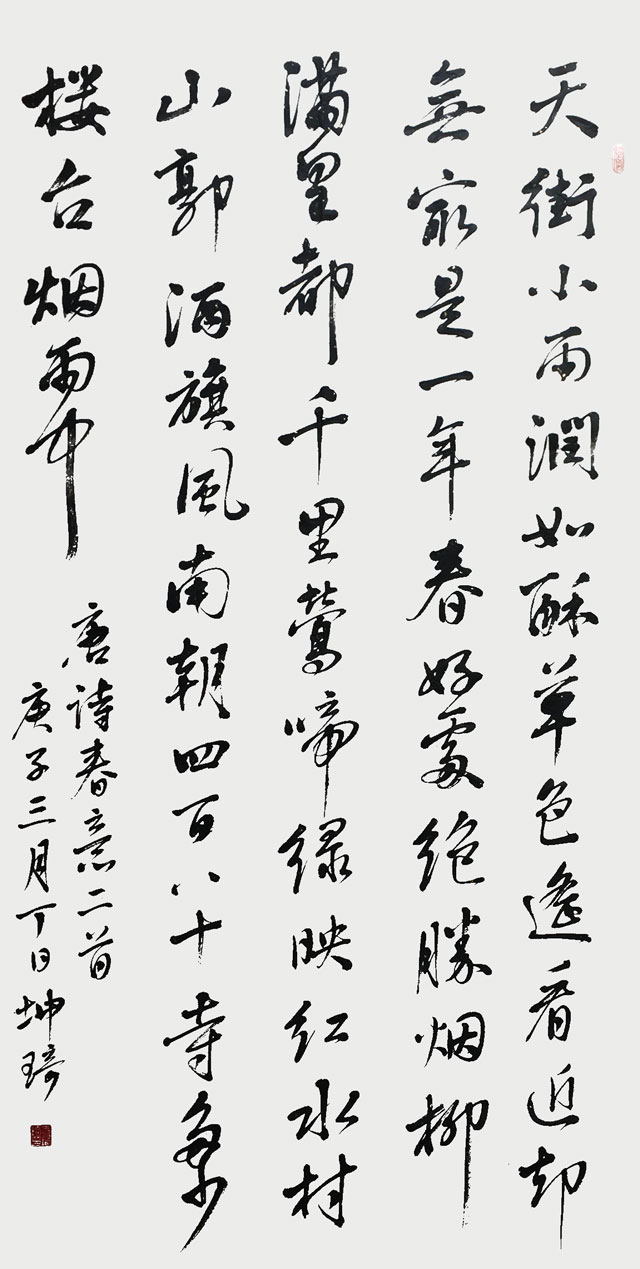 天街小雨潤如酥草色遙看近却
無最是一年春好處绝勝烟柳
满皇都千里鶯啼绿映红水村
山郭酒旗風南朝四百八十寺多少
楼台烟雨中
唐詩春意二首
庚子三月丁日坤琦